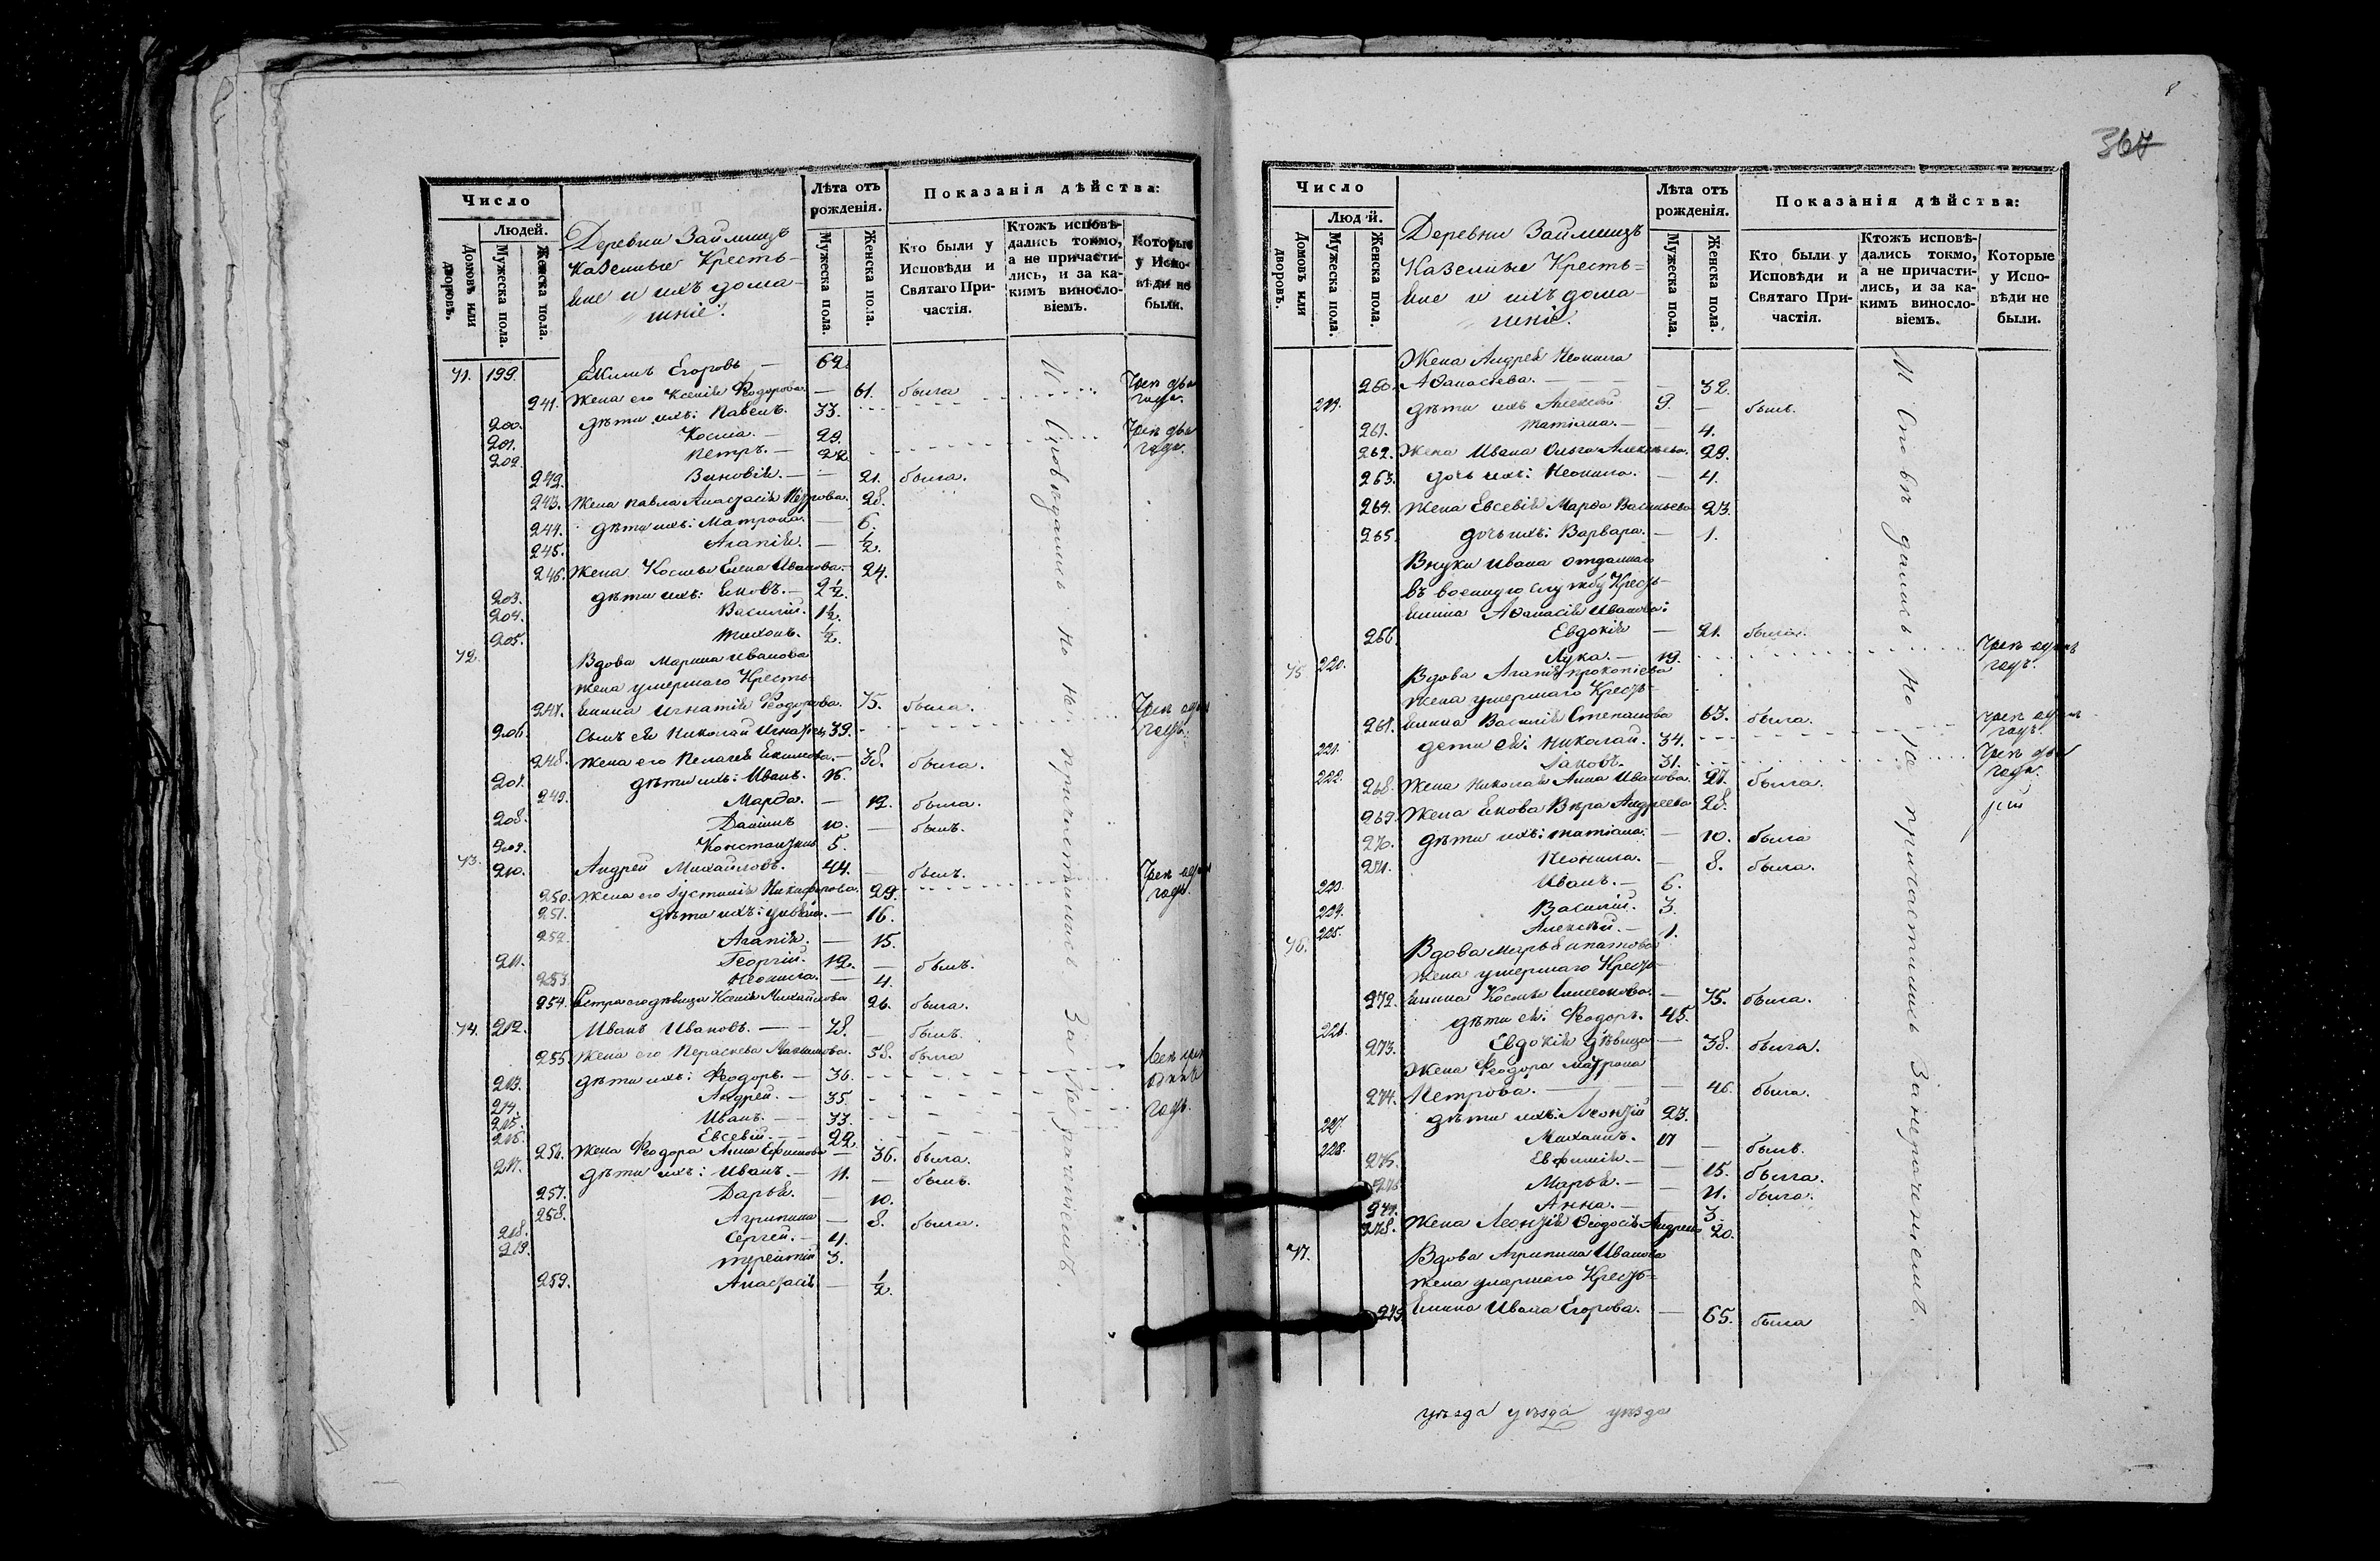 Число
Людей.
Домовъ или дворовъ.
Мужеска пола.
Женска пола.
Деревни Займищъ
Казенные Кресть-
яне и ихъ дома-
шніе.
Лѣта отъ рожденія.
Мужеска пола.
Женска пола.
Показанія дѣйства:
Кто были у Исповѣди и Святаго При-частія.
Ктожъ исповѣ-дались токмо, а не причасти-лись, и за ка-кимъ винosло-віемъ.
Которые у Испо-вѣди не были.
71. 199. Екимъ Егоровъ — 62.
241. Жена его Ксенія Ѳеодорова. — 61. была
200. дѣти ихъ: Павелъ. 33.
201. Косма. — 29.
202. Петръ. — 22.
242. Зиновія. — 21. была.
243. Жена Павла Анастасія Петрова. 28.
244. дѣти ихъ: Матрона. — 6.
245. Агапія. — ½.
246. Жена Космы Елена Иванова. — 24.
203. дѣти ихъ: Яковъ. — 2½.
204. Василій. 1½.
205. Тихонъ. ½.
72. Вдова Марина Иванова
жена умершаго Кресть-
247. янина Игнатія Ѳеодорова. 75. была.
206. Сынъ ея Николай 39.
248. Жена его Пелагея Екимова. — 38. была.
207. дѣти ихъ: Иванъ. 16.
249. Марѳа. — 12. была.
208. Даніилъ 10. — былъ.
209. Константинъ 5.
73. 210. Андрей Михайловъ. 44. — былъ.
250. Жена его Іустинія Никифорова. 29.
251. дѣти ихъ: — 16.
252. Агапія. — 15.
211. Георгій. 12. — былъ.
253. Неонила. — 4.
254. Сестра его дѣвица Ксенія Михайлова 26. была.
74. 212. Иванъ Ивановъ. — 78. — былъ.
255. Жена его Параскева 58. была
213. дѣти ихъ: Ѳеодоръ. — 36.
214. Андрей. — 35.
215. Иванъ. — 33.
216. Евсевій. — 22.
256. Жена Ѳеодора Анна Ефимова — 36. была.
217. дѣти ихъ: Иванъ. — 11. — былъ.
257. Дарья. — 10.
258. Агрипина — 8. была.
218. Сергей. — 4.
219. Терентій 3.
259. Анастасія — ½.
Исповѣдались но не причастились За
367
Число
Людей.
Домовъ или дворовъ.
Мужеска пола.
Женска пола.
Деревни Займищъ
Казенные Кресть=
яне и ихъ дома-
шніе.
Лѣта отъ рожденія.
Мужеска пола.
Женска пола.
Показанія дѣйства:
Кто были у Исповѣди и Святаго При-частія.
Ктожъ исповѣ-дались токмо, а не причасти-лись, и за ка-кимъ винosло-віемъ.
Которые у Испо-вѣди не были.
Жена Андрея Неонила
260. Аѳанасьева. — 32.
219. дѣти ихъ Алексѣй 9. — былъ.
261. Татіана. — 4.
262. Жена Ивана Ольга Алексѣева. 29.
263. дочь ихъ: Неонила. — 4.
264. Жена Евсевія Марѳа Васильева 23.
265. дочь ихъ: Варвара. — 1.
Внуки Ивана отданнаго
въ военную службу Кресть-
янина Аѳанасія Иванова:
266. Евдокія — 21. была.
220. Лука. — 19.
75. Вдова Агапія Прокопіева
жена умершаго Кресть-
267. янина Василія Степанова 63. была.
221. дети ея: Николай. 34.
222. Іаковъ. 31.
268. Жена Николая Анна Иванова. 27. была.
269. Жена Якова Вѣра Андреева 28.
270. дѣти ихъ: Татіана. — 10. была
271. Неонила. — 8. была.
223. Иванъ. — 6.
224. Василій. 3.
225. Алексѣй. — 1.
76. Вдова Марья
жена умершаго Кресть-
272. янина Космы Симеонова. — 75. была.
226. дѣти ея: Ѳеодоръ. 45.
273. Евдокія дѣвица — 38. была.
Жена Ѳеодора Матрона
274. Петрова. — 46. была.
227. дѣти ихъ: Леонтій 23.
228. Михаилъ. 17 — былъ.
275. Евфимія. — 15. была.
276. Марья. — 11. была.
277. Анна. — 3.
278. Жена Леонтія Ѳеодосія Андреева 20.
77. Вдова Агрипина Иванова
жена умершаго Кресть=
279. янина Ивана Егорова. — 65. была
Исповѣдались но не причастились
уѣзда уѣзда уѣзда